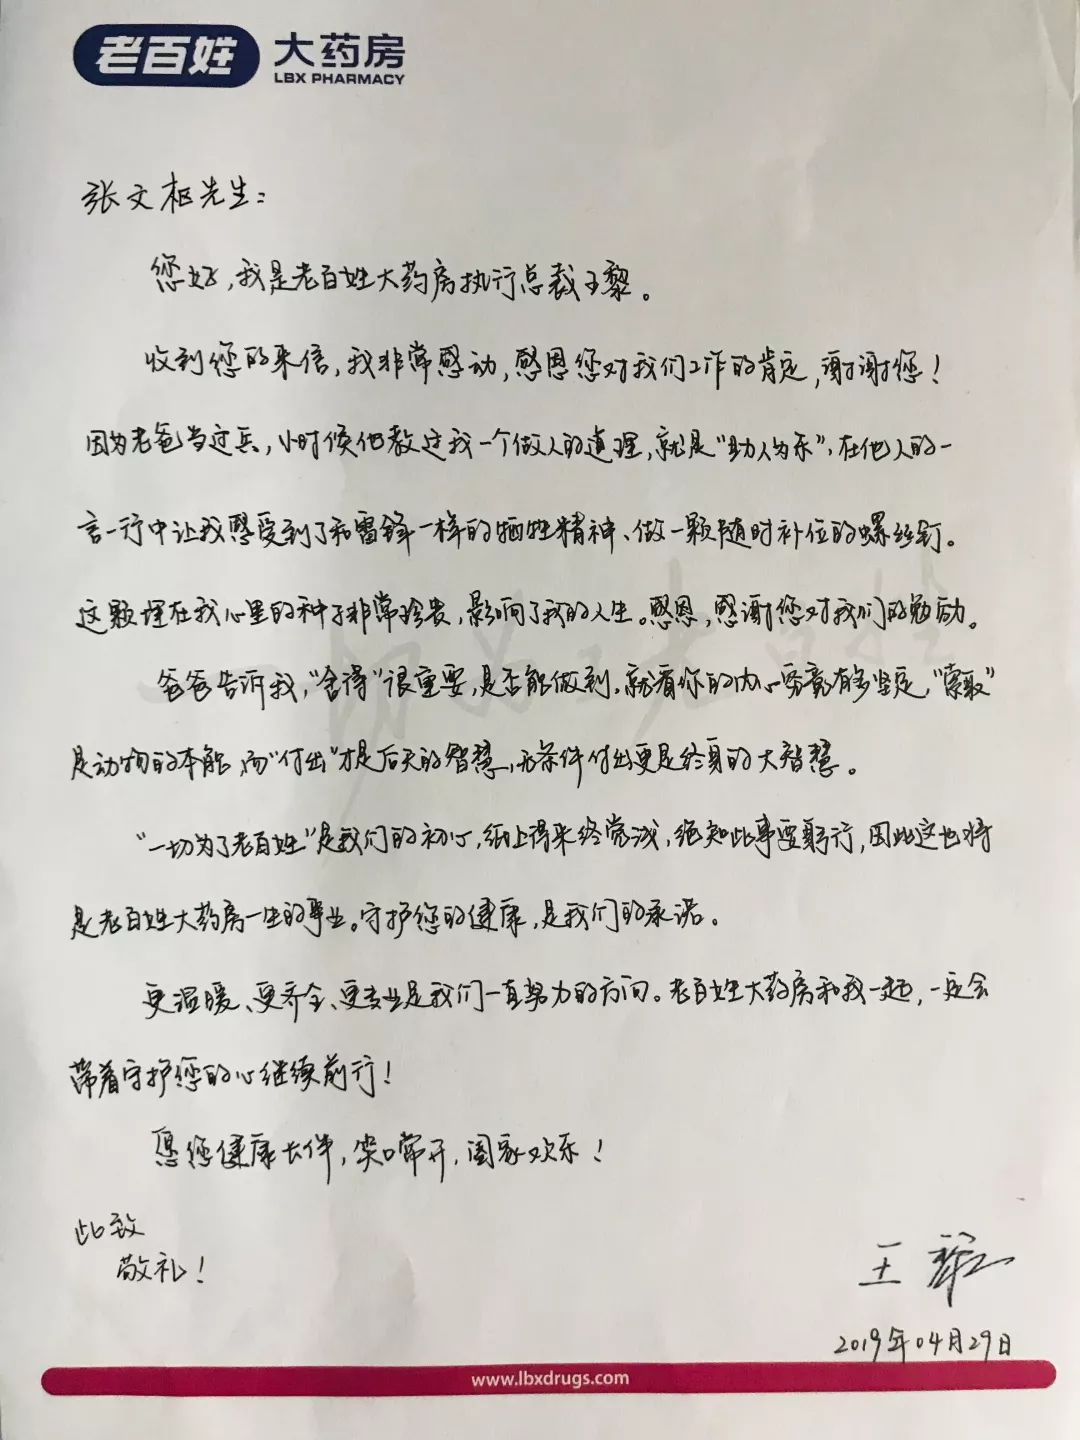 老百姓 大药房
LBX PHARMACY
张文枢先生：
您好，我是老百姓大药房执行总裁王黎。
收到您的来信，我非常感动，感恩您对我们工作的肯定，谢谢您！
因为老爸当过兵，小时候他教过我一个做人的道理，就是“助人为乐”，在他人的一
言一行中让我感受到了和雷锋一样的牺牲精神、做一颗随时补位的螺丝钉。
这颗埋在我心里的种子非常珍贵，影响了我的人生。感恩，感谢您对我们的勉励。
爸爸告诉我，“舍得”很重要，是否能做到，就看你的内心究竟有多坚定，“索取”
是动物的本能，而“付出”才是后天的智慧，无条件付出更是终身的大智慧。
“一切为了老百姓”是我们的初心，纸上得来终觉浅，绝知此事要躬行，因此这也将
是老百姓大药房一生的事业。守护您的健康，是我们的承诺。
更温暖、更齐全、更专业是我们一直努力的方向。老百姓大药房和我一起，一定会
带着守护您的心继续前行！
愿您健康长伴，笑口常开，阖家欢乐！
此致
敬礼！
王黎
2019年04月29日
www.lbxdrugs.com